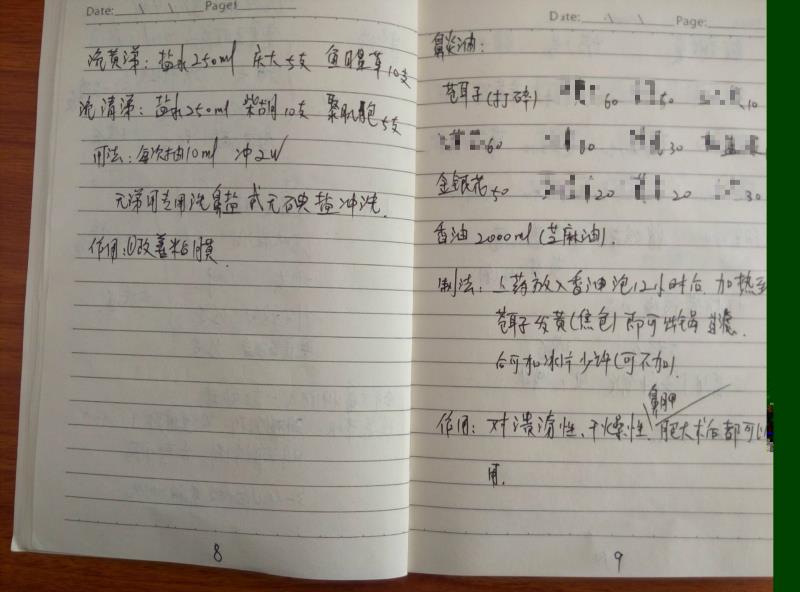 Date:
Page:
流黄涕：盐水250ml 庆大5支 鱼腥草10支
流清涕：盐水250ml 柴胡10支 聚肌胞5支
用法：每次抽10ml 冲2W
无涕用专用洗鼻盐或无碘盐冲洗.
作用：①改善粘膜
8
Date:
Page:
鼻炎油：
苍耳子(打碎) 60 50 10
60 30
金银花50 20 20 30
香油2000ml(芝麻油).
制法：上药放入香油泡12小时后.加热至
苍耳子发黄(焦色)即可出锅 过滤.
后可加冰片少许(可不加).
鼻甲
作用：对溃疡性、干燥性、肥大术后都可以
用.
9